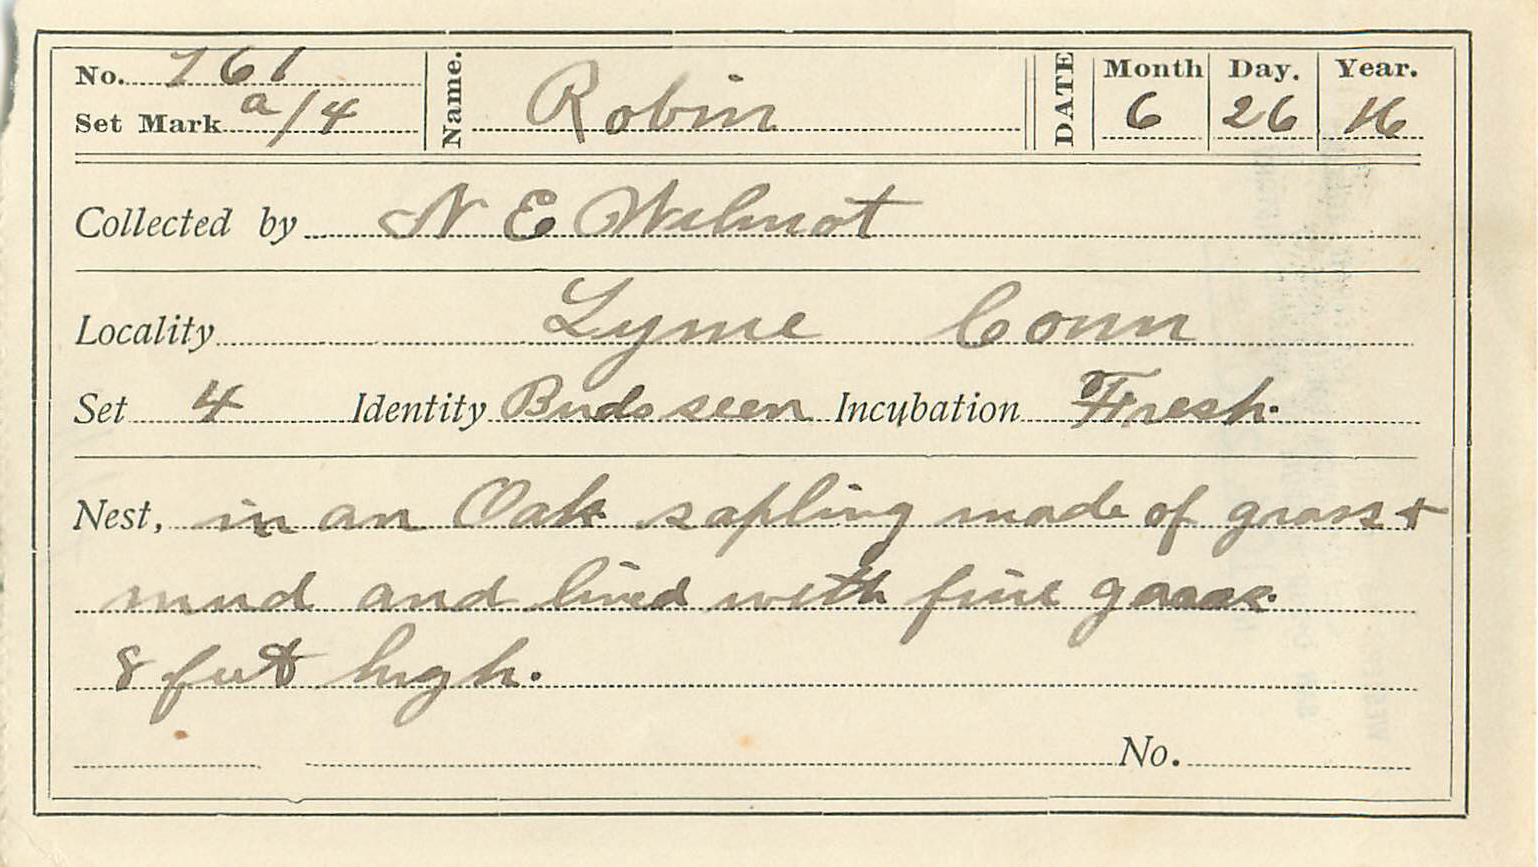 No. 761
Set Mark a/4
Name. Robin
DATE Month 6 Day. 26 Year. 16
Collected by N E Wilmot
Locality Lyme Conn
Set 4 Identity Birds seen Incubation Fresh.
Nest, in an Oak sapling made of grass +
mud and lined with fine grass.
8 feet high.
No.